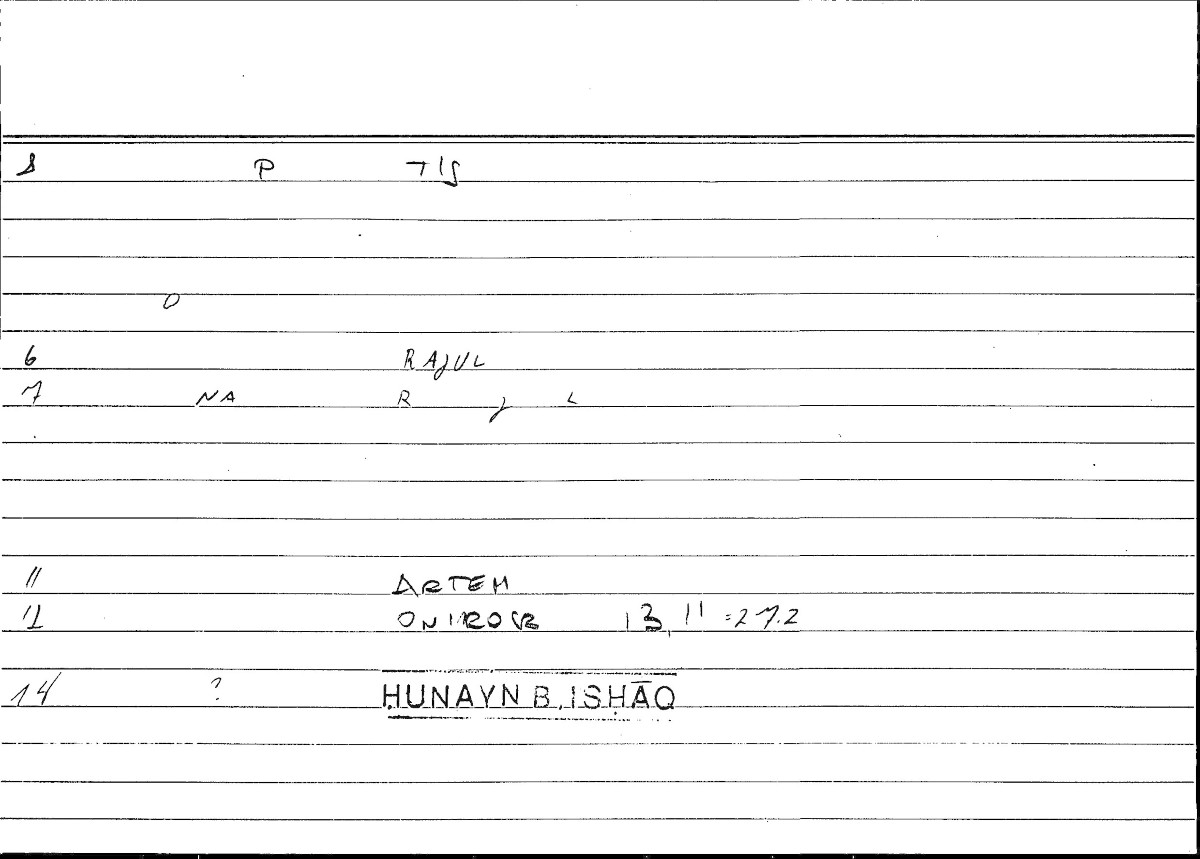 P
O
6 RAJUL
7 NA R J L
11 ARTEM
12 ONIROCR 13, 11 = 27.2
14 ? ḤUNAYN B. ISḤĀQ